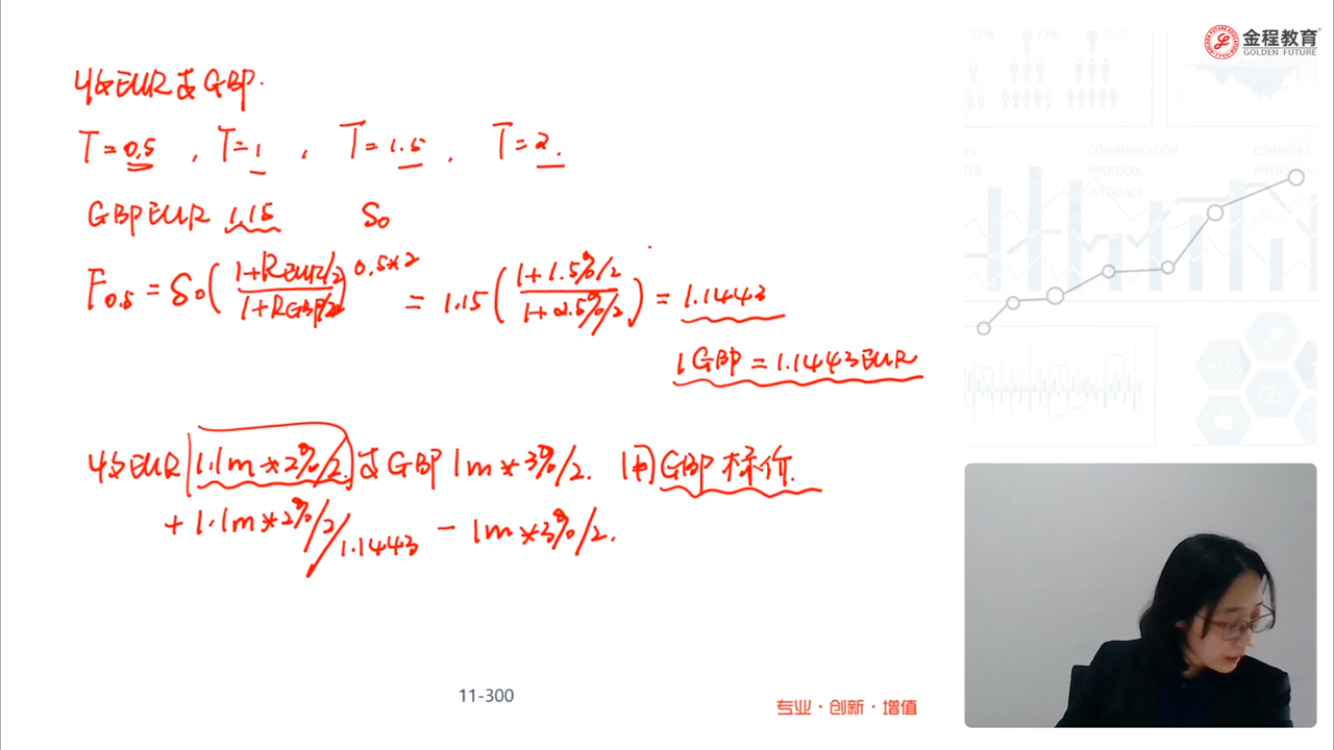 收EUR支GBP.
T=0.5 , T=1 , T=1.5 , T=2.
GBPEUR 1.15 S₀
F₀.₅ = S₀((1+R_EUR/2)/(1+R_GBP/2))^0.5*2 = 1.15((1+1.5%/2)/(1+2.5%/2)) = 1.1443
1GBP = 1.1443EUR
收EUR 1.1m*2%/2. 支GBP 1m*3%/2. 用GBP标价.
+ 1.1m*2%/2/1.1443 - 1m*3%/2.
11-300
专业·创新·增值
金程教育
GOLDEN FUTURE
67%
72%
COMMUNICATION
PROTOCOL
INTERFACE
COMPUTER
40%
72%